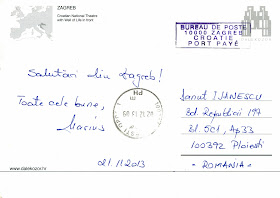 ZAGREB
Croatian National Theatre
with Well of Life in front
BUREAU DE POSTE
10000 ZAGREB
CROATIE
PORT PAYÉ
Salutări din Zagreb!
Toate cele bune,
Marius
21.11.2013
Ionuț IVĂNESCU
Bd. Republicii 197
Bl. 5C1, Ap. 33
100392 Ploiești
- ROMANIA -